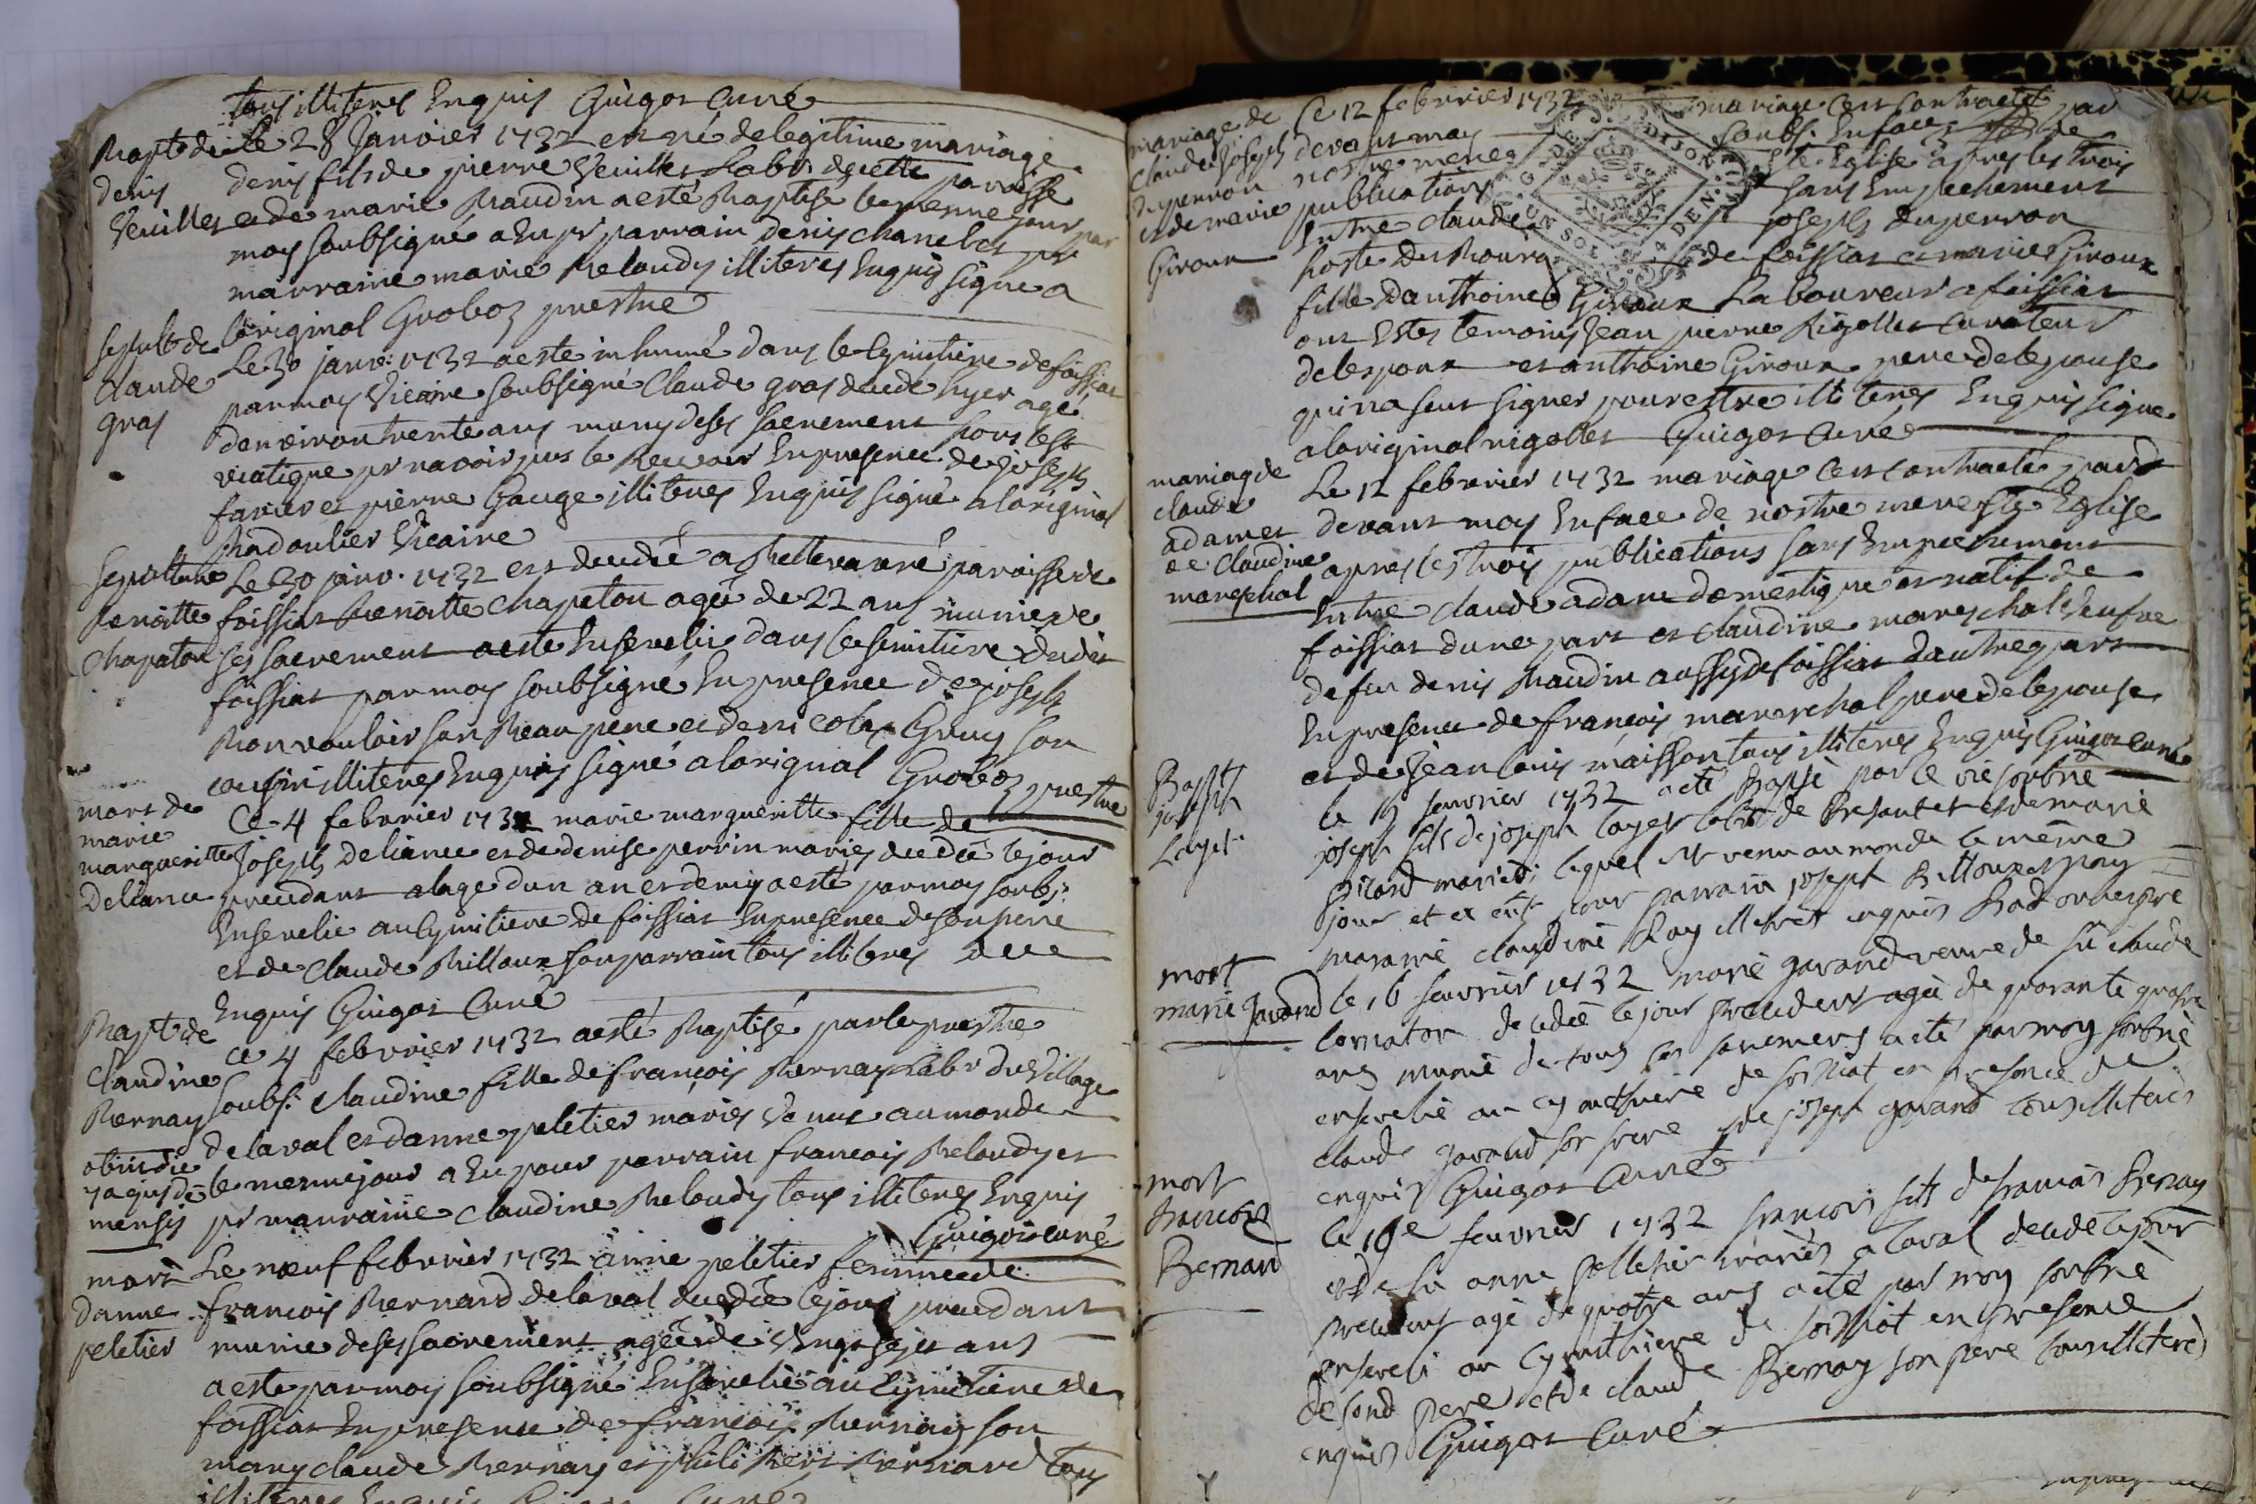 tous illiteres Enquis Guigot Curé
Bapt de
denis
Veuillet
le 28 Janvier 1732 est né de legitime mariage
denis fils de pierre Veuillet Labr de cette paroisse
et de marie Baudin a esté Baptisé le meme jour par
moy soubsigné a Eu pr parrain denis Chanel et pr
marraine marie Beloudy illiteres Enquis signe a
loriginal Groboz prestre
Sepult de
Claude
gras
Le 30 janv. 1732 a este inhumé dans le Cymitiere de foissiat
par moy Vicaire soubsigné Claude gras decede hyer agé
denviron trente ans muny de ses sacrement hors le st
viatique pr navoir pus le Recevoir En presence de joseph
favier et pierre Gauge illiteres Enquis signé a loriginal
Badoulier Vicaire
Sepulture
Benoitte
Chapaton
Le 30 janv. 1732 est decedée a paroisse de
foissiat Benoitte Chapeton agée de 22 ans munie de
ses sacrement a esté Ensevelie dans le semitiere dudit
foissiat par moy soubsigné En presence de joseph
Monvouloir son Beau pere et de ni colas Gruy son
cousin illiteres Enquis signé a loriginal Groboz prestre
mort de
marie
margueritte
Deliance
Ce 4 febvrier 1732 marie margueritte fille de
Joseph deliance et de denise perrin mariés decedée le jour
precedant a lage dun an et demis a esté par moy soubs:
Ensevelie au Cymitiere de foissiat En presence de son pere
et de Claude Billoux son parrain tous illiteres
Enquis Guigot Curé
Bapt de
Claudine
Bernay
obiit die
mensis
Ce 4 febvrier 1732 a esté Baptisé par le prestre
soubs: Claudine fille de françois Bernay Labr du Village
de laval et danne peletier mariés Venue au monde
le meme jour a Eu pour parrain francois Beloudy et
pr marraine Claudine Beloudy tous illiteres Enquis
Guigot curé
mort
danne
peletier
Le neuf febvrier 1732 anne peletier femme de
francois Bernard de laval decedée le jour precedant
munie de ses sacrement agée de Vingt ans
a esté par moy soubsigné Ensevelie au Cymitiere de
foissiat En presence de francois Bernay son
mary claude Bernay et philibert Bernard tous
illiteres Enquis Guigot Curé
mariage de
Claude Joseph
Duperron
et de marie
Giroux
Ce 12 febvrier 1732 mariage cest contracté par
devant moy soubs: En face de
nostre mere Ste Eglise apres les trois
publications sans Empechement
Entre Claude joseph duperron
hoste de foissiat et marie Giroux
fille danthoine Giroux Laboureur a foissiat
ont Estes temoins Jean pierre Rigollet Curateur
de lespoux et anthoine Giroux pere de lepouse
qui na sceut signer pour estre illiteres Enquis signe
a loriginal rigollet Guigot Curé
mariag de
claude
adam et
de Claudine
mareschal
Le 12 febvrier 1732 mariage cest contracté par
devant moy En face de nostre mere Ste Eglise
apres les trois publications sans Empechement
Entre claude adam domestique et natif de
foissiat dune part et claudine mareschal Veufve
de feu denis Baudin aussy de foissiat dautre part
En presence de francois mareschal pere de lepouse
et de Jean louis maisson tous illiteres Enquis Guigot Curé
Bapt
joseph
Layet
le fevvrier 1732 a été Baptisé par le vic soubné
joseph fils de joseph layet labr de et de marie
Picard mariés lequel est venu au monde le même
jour et a eut pour parrain joseph Billoux et pour
maraine claudine Ray illiteres enquis
mort
marie Gavand
le 16 fevvrier 1732 marie gavand veuve de fû claude
decedée le jour precedent agée de quarante quatre
ans munie de tous ses sacremens a été par moy soubné
ensevelie au cymethiere de foissiat en presence de
claude gavand son frere et de joseph gavand tous illiteres
enquis Guigot Curé
mort
francois
Bernard
le fevvrier 1732 francois fils de francois Bernay
et de fû anne pelletier mariés a laval decedé le jour
precedent agé de quatre ans a été par moy soubné
enseveli au cymithiere de foissiat en presence
de sond pere et de claude Bernay son pere tous illiteres
enquis Guigot Curé